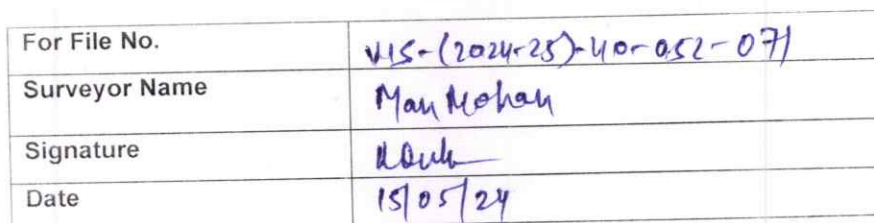 For File No. VIS-(2024-25)-40-052-071
Surveyor Name Man Mohan
Signature
Date 15/05/24